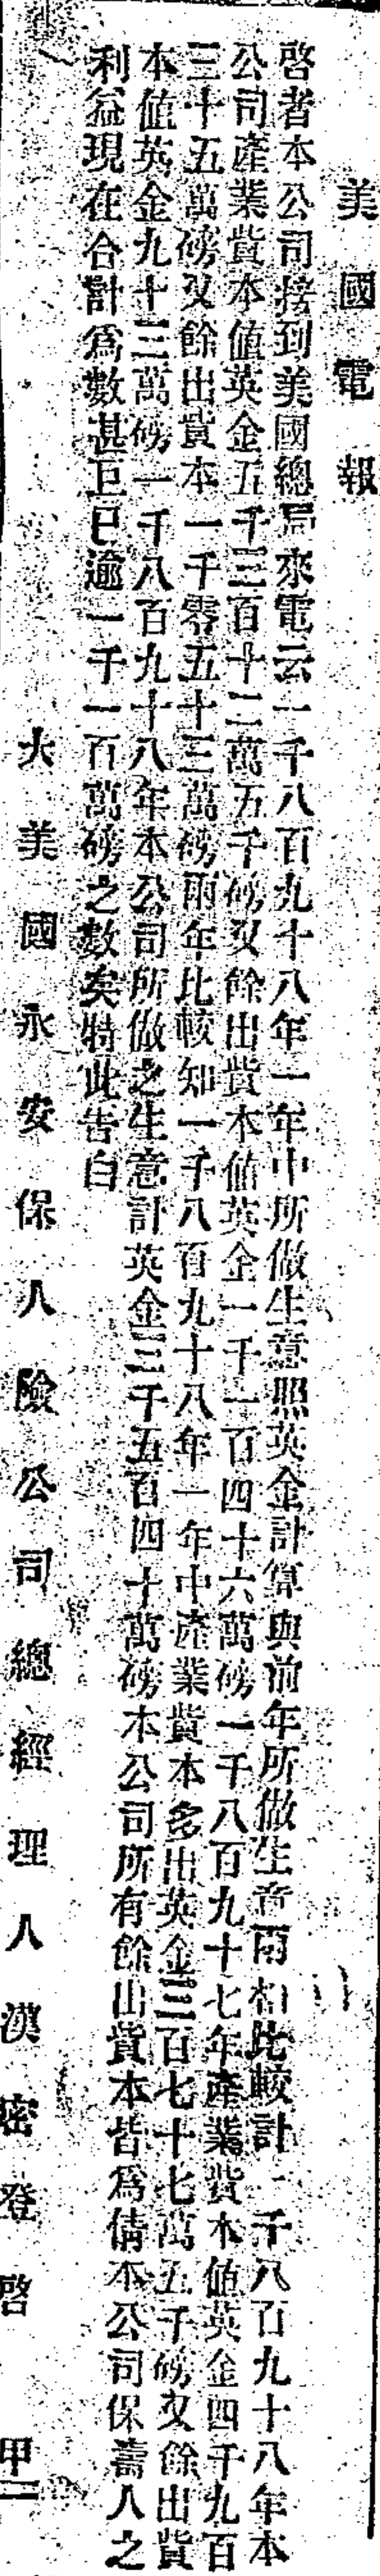 美國電報
啓者本公司接到美國總局來電云一千八百九十八年一年中所做生意照英金計算與前年所做生意兩相比較計一千八百九十八年本
公司產業貲本值英金五千三百十二萬五千磅又餘出貲本值英金一千一百四十六萬磅一千八百九十七年產業貲本值英金四千九百
三十五萬磅又餘出貲本一千零五十三萬磅兩年比較知一千八百九十八年一年中產業貲本多出英金三百七十七萬五千磅又餘出貲
本值英金九十三萬磅一千八百九十八年本公司所做之生意計英金三千五百四十萬磅本公司所有餘出貲本皆爲倩本公司保壽人之
利益現在合計爲數甚巨已逾一千一百萬磅之數矣特此告白
大美國永安保人險公司總經理人漢密登啓 甲二